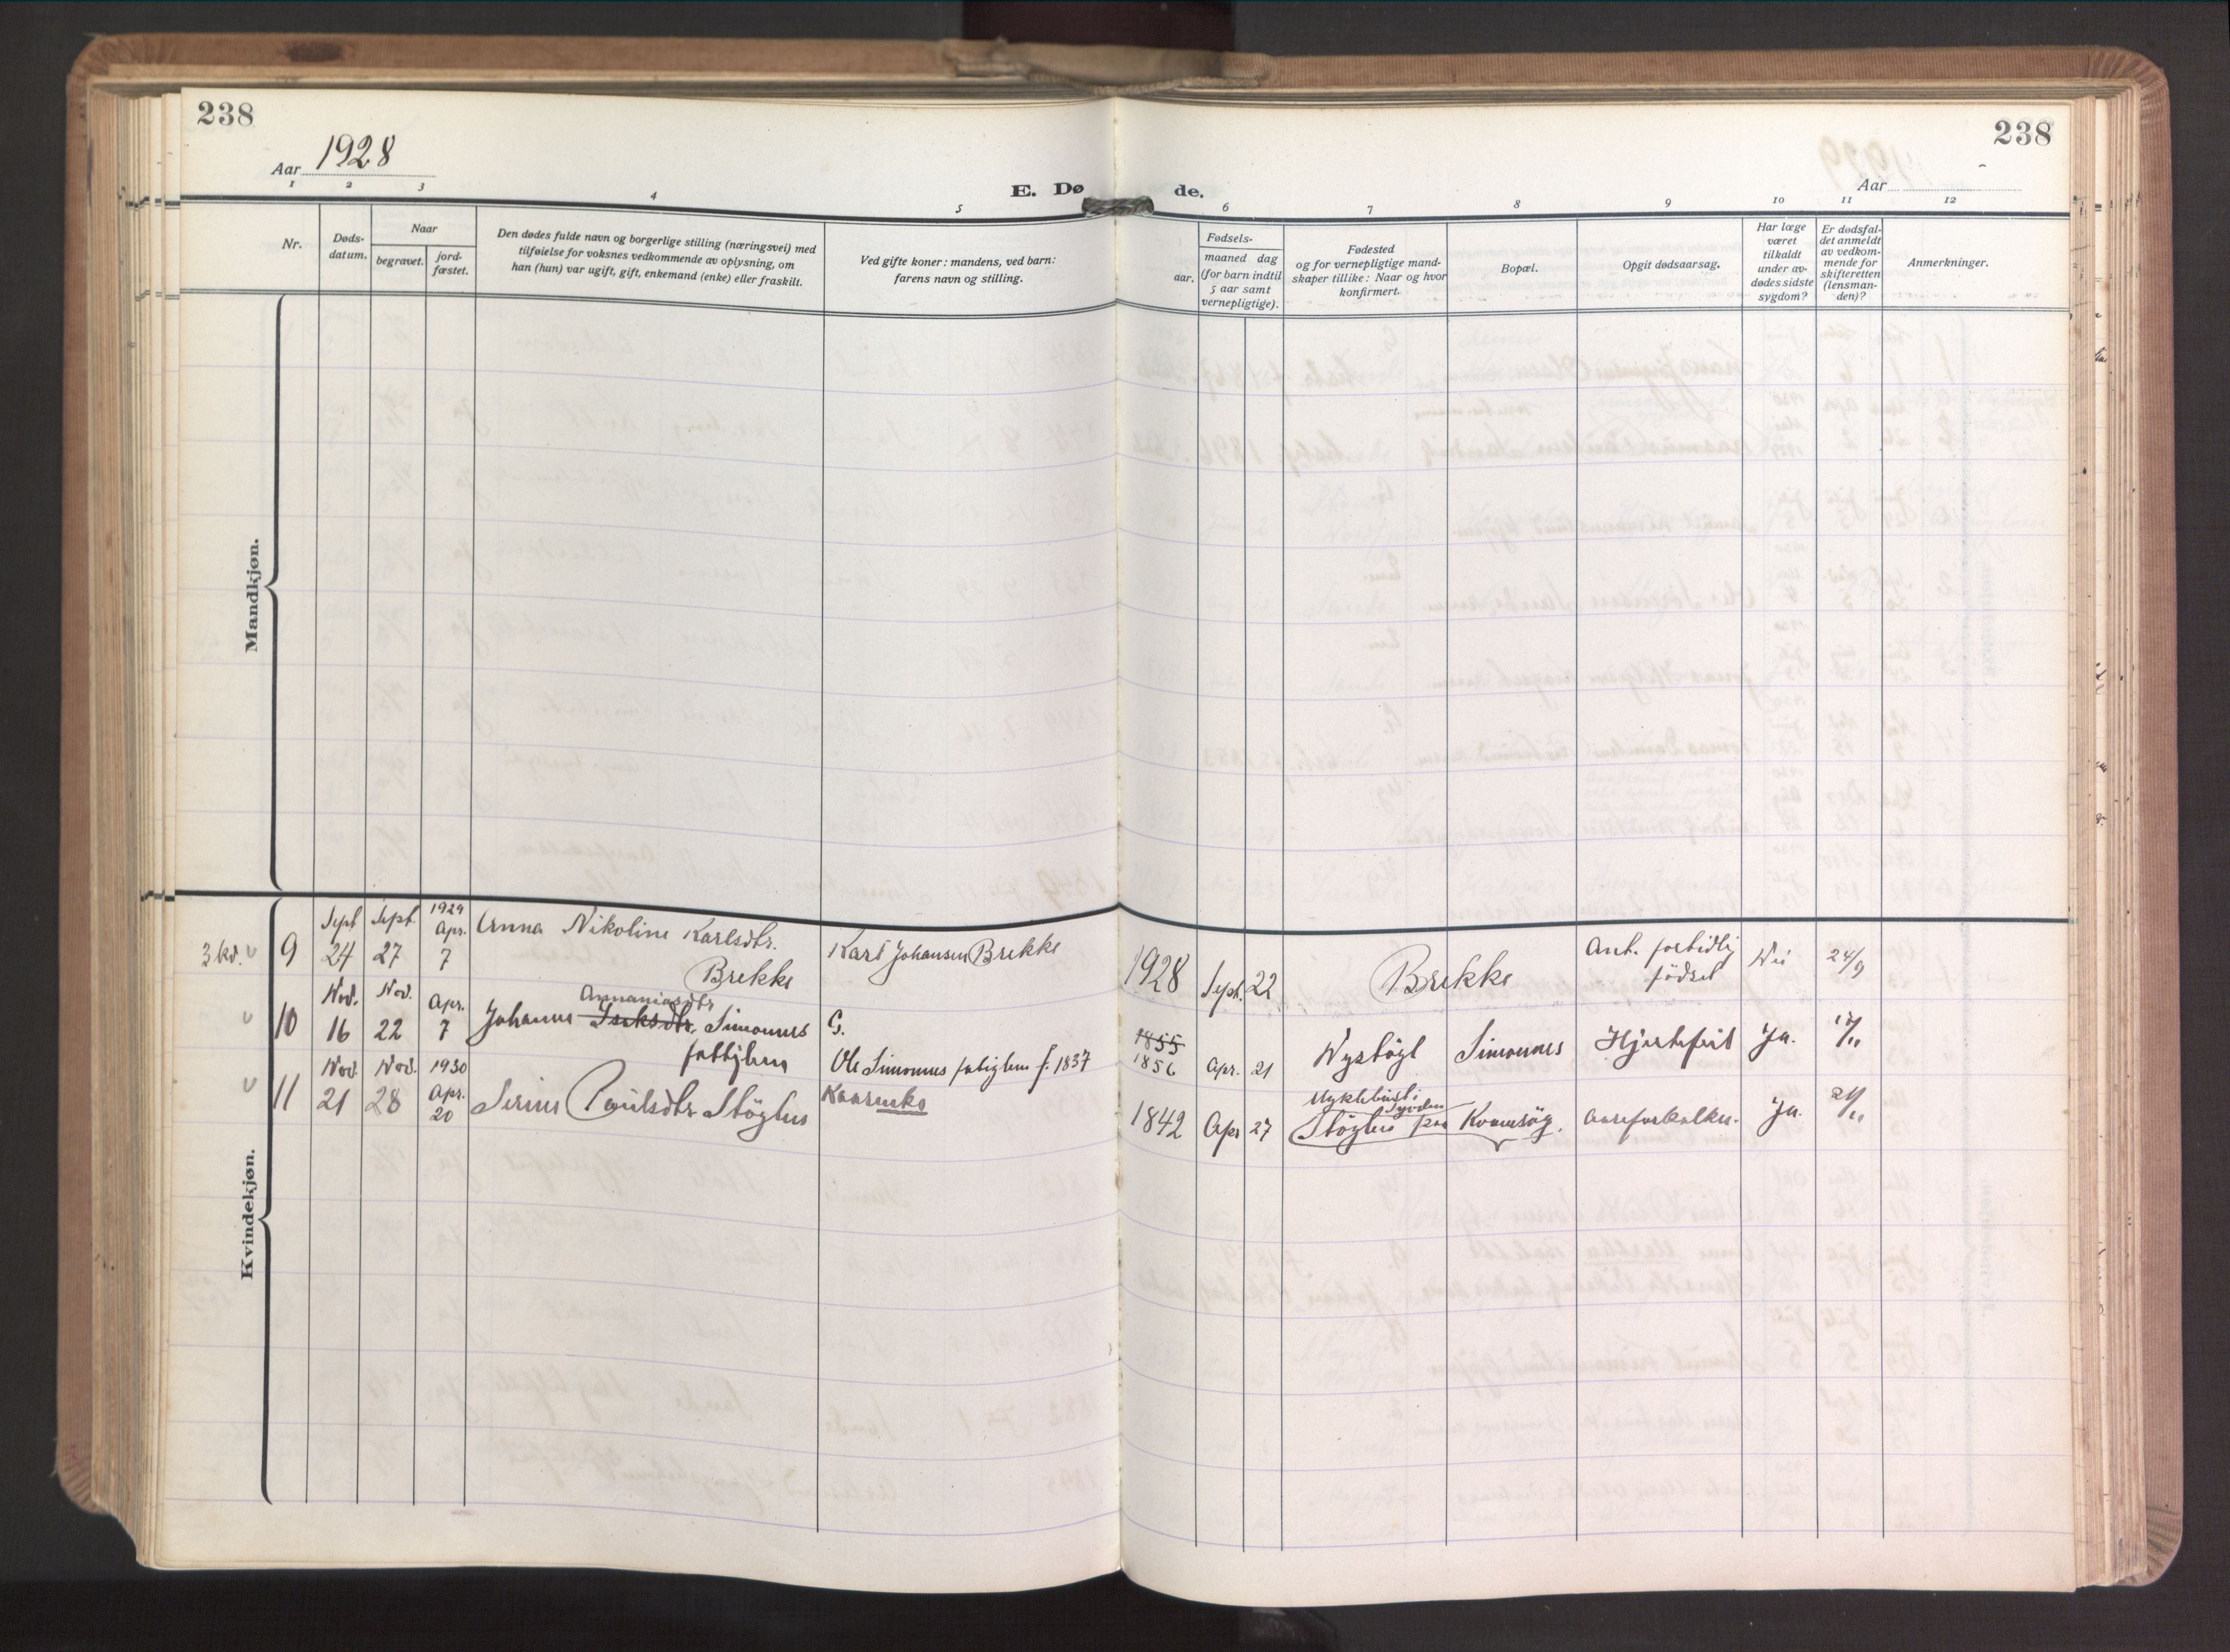 238
238
Aar 1928
Aar
E. Dø
de.
1 2 3 4 5 6 7 8 9 10 11 12
Nr.
Døds-
datum.
Naar
begravet.
jord-
fæstet.
Den dødes fulde navn og borgerlige stilling (næringsvei) med
tilføielse for voksnes vedkommende av oplysning, om
han (hun) var ugift, gift, enkemand (enke) eller fraskilt.
Ved gifte koner: mandens, ved barn:
farens navn og stilling.
Fødsels-
aar.
maaned dag
(for barn indtil
5 aar samt
vernepligtige).
Fødested
og for vernepligtige mand-
skaper tillike: Naar og hvor
konfirmert.
Bopæl.
Opgit dødsaarsag.
Har læge
været
tilkaldt
under av-
dødes sidste
sygdom?
Er dødsfal-
det anmeldt
av vedkom-
mende for
skifteretten
(lensman-
den)?
Anmerkninger.
Mandkjøn.
Kvindekjøn.
9
Sept
24
Sept.
27
1929
Apr.
7
Anna Nikoline Karlsdtr.
Brekke
Karl Johansen Brekke
1928 Sept. 22
Brekke
Ant. fortidlig
födsel
Nei
24/9
10
Nov.
16
Nov.
22
Apr.
7
Ananiasdtr
Johanne Simonnes
G.
Ole Simonnes f. 1837
1855
1856 Apr. 21
Simonnes
Hjertefeil
Ja.
11
Nov.
21
Nov.
28
1930
Apr.
20
Serine Paulsdtr Stöylen
1842 Apr 27
Stöylen paa Kvamsöy.
aareforkalkn.
Ja.